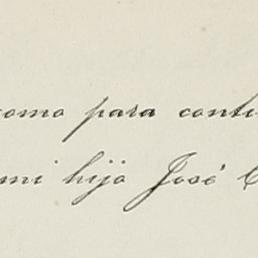 como para conti
mi hijo José C